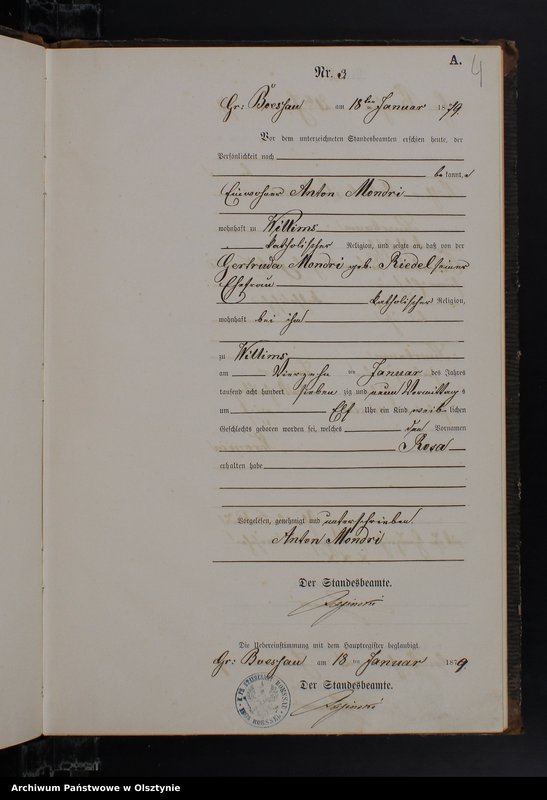 A.
4
Nr. 3
Gr: Boessau am 18ten Januar 1879.
Vor dem unterzeichneten Standesbeamten erschien heute, der
Persönlichkeit nach
bekannt,
Einwohner Anton Mondri
wohnhaft zu Willims
katholischer Religion, und zeigte an, daß von der
Gertruda Mondri geb. Riedel seiner
Ehefrau
katholischer Religion,
wohnhaft bei ihm
zu Willims
am Vierzehn ten Januar des Jahres
tausend acht hundert sieben zig und neun Vormittags
um Elf Uhr ein Kind weiblichen
Geschlechts geboren worden sei, welches den Vornamen
Rosa
erhalten habe
Vorgelesen, genehmigt und unterschrieben.
Anton Mondri
Der Standesbeamte.
Die Uebereinstimmung mit dem Hauptregister beglaubigt.
Gr: Boessau am 18 ten Januar 1879
Der Standesbeamte.
Archiwum Państwowe w Olsztynie